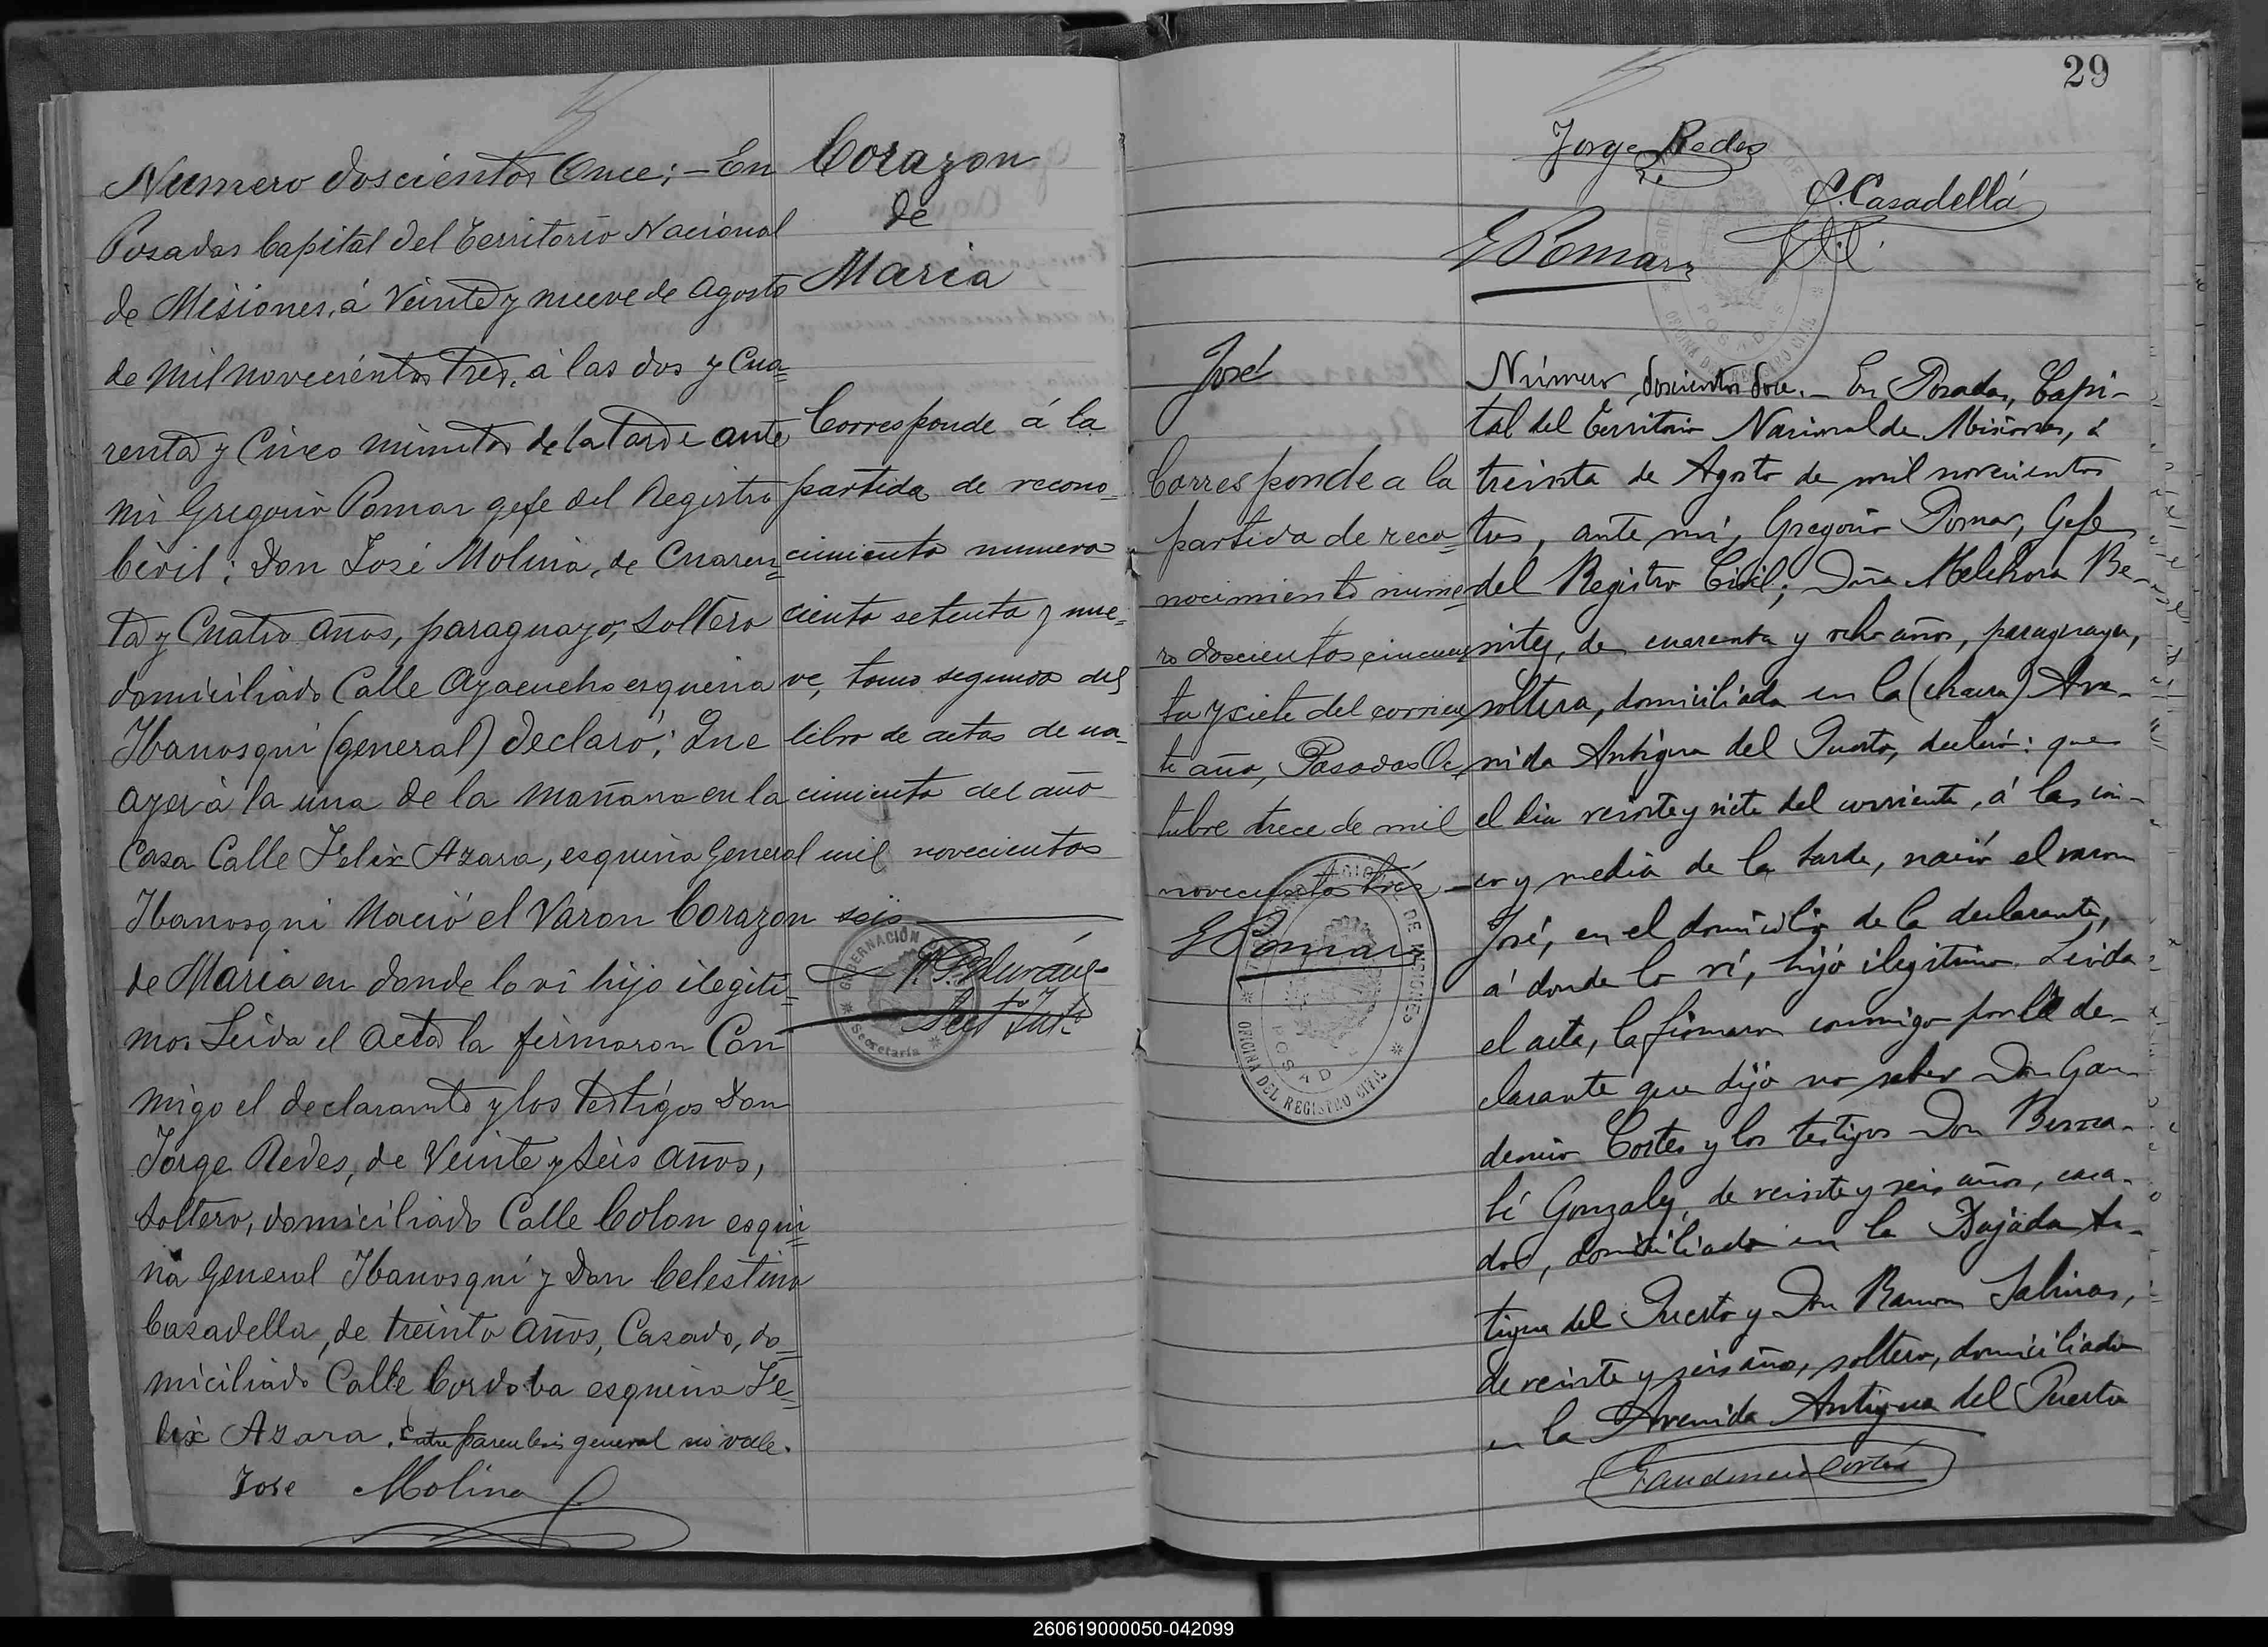 Numero doscientos Once; - En
Posadas Capital del Territorio Nacional
de Misiones, á Veinte y nueve de Agosto
de mil novecientos tres, á las dos y Cua=
renta y Cinco minutos de la tarde ante
mi Gregorio Pomar gefe del Registro
Civil; Don José Molina, de Cuaren=
ta y Cuatro años, paraguayo, soltero
domiciliado Calle Ayacucho esquina
Ibanosqui (general) declaró; Que
ayer á la una de la mañana en la
Casa Calle Felix Azara, esquina General
Ibanosqui Nació el Varon Corazon
de Maria en donde lo vi hijo ilegiti=
mo. Leida el acta la firmaron Con
migo el declarante y los testigos Don
Jorge Redes, de Veinte y seis años,
soltero, domiciliado Calle Colon esqui=
na General Ibanosqui y Don Celestino
Casadella, de treinta años, Casado, do=
miciliado Calle Cordoba esquina Fe=
lix Azara. Entre parentesis general no vale.
Jose Molina
Corazon
de
Maria
Corresponde á la
partida de recono_
cimiento numero
ciento setenta y nue=
ve, tomo segundo del
libro de actas de na_
cimiento del año
mil novecientos
seis
GOBERNACIÓN
Secretaría
29
Jorge Redes
C. Casadellá
G Pomar
OFICINA DEL REGISTRO CIVIL
POSADAS
José
Corresponde a la
partida de reco=
nocimiento nume=
ro doscientos cincuen
ta y siete del corrien
te año, Posadas Oc
tubre trece de mil
novecientos trés
G Pomar
DE MISIONES
POSAD
OFICINA DEL REGISTRO CIVIL
Número doscientos doce. - En Posadas, Capi-
tal del Territorio Nacional de Misiones, á
treinta de Agosto de mil novecientos
tres, ante mi, Gregorio Pomar, Gefe
del Registro Civil; Doña Melchora Be-
nitez, de cuarenta y ocho años, paraguaya,
soltera, domiciliada en la (chacra) Ave-
nida Antigua del Puerto, declaró: que
el dia veinte y siete del corriente, á las cin-
co y media de la tarde, nació el varon
José, en el domicilio de la declarante,
á donde lo ví, hijo ilegitimo. Leida
el acta, la firmaron conmigo por la de-
clarante que dijo no saber Don Gau-
dencio Cortes y los testigos Don
Gonzalez, de veinte y seis años, casa-
do, domiciliado en la Bajada An-
tigua del Puerto y Don Ramon Salinas,
de veinte y seis años, soltero, domiciliado
en la Avenida Antigua del Puerto
Gaudencio Cortés
260619000050-042099